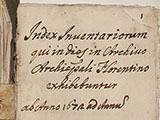 1
Index Inventariorum
qui in dies in Archivo
Archiepali Florentino
exhibentur
ab Anno 1670 ad Annu